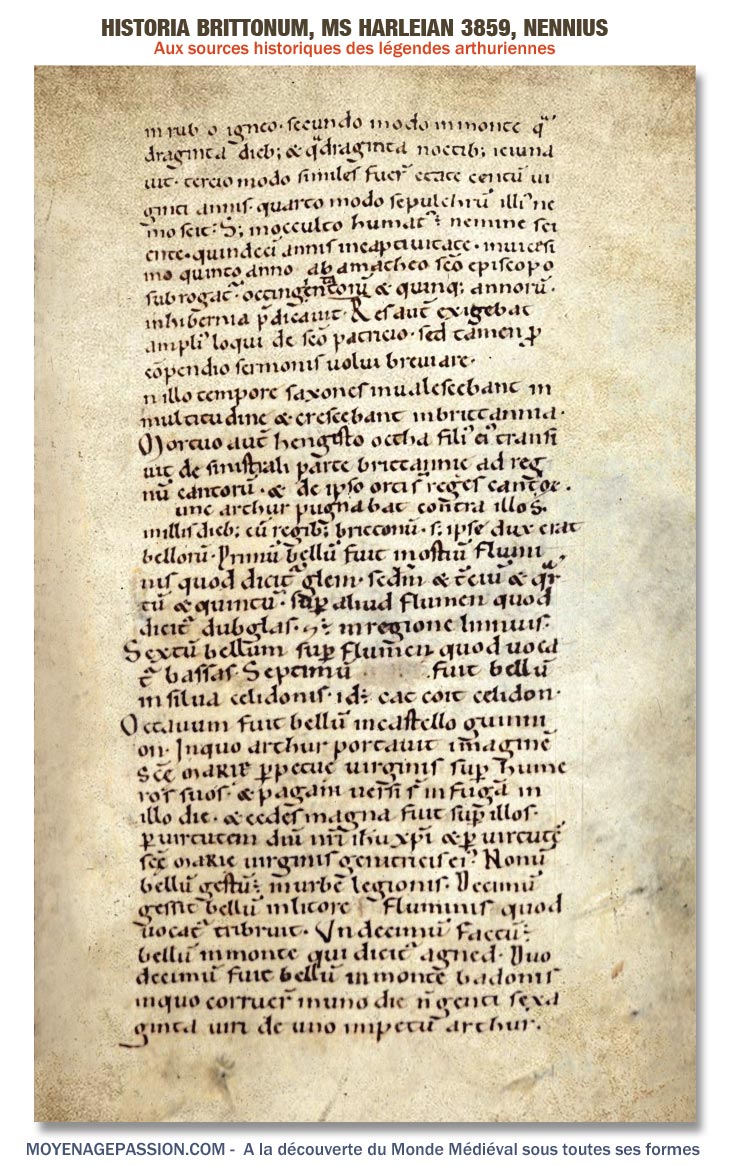 HISTORIA BRITTONUM, MS HARLEIAN 3859, NENNIUS
Aux sources historiques des légendes arthuriennes
in rub o igneo. secundo modo in monte q̃
draginta dieb; & q̃draginta noctib; ieiuna
uit. tercio modo similes fuer̄ etate centū ui
ginti annis. quarto modo sepulchrū illi' ne
mo scit. S; in occulto humat' nemine sci
ente. quindecī annis in captiuitate. in uicesi
mo quinto anno ab amatheo sc̄o episcopo
subrogat'. octingentorū & quinq; annorū.
in hibernia p̄dicauit. Res aut̄ exigebat
ampli' loqui de sc̄o patricio. sed tamen ꝓ
cōpendio sermonis uolui breuiare.
n illo tempore saxones inualescebant in
multitudine & crescebant in brittannia.
Mortuo aut̄ hengisto octha fili' ei' transi
uit de sinistrali parte brittannie ad reg
nū cantorū. & de ipso orti s̄ reges cantor̄.
unc arthur pugnabat contra illos.
in illis dieb; cū regib; brittonū. s; ipse dux erat
bellorū. Primū bellū fuit in ostiū flumi
nis quod dicit' glein. sedm̄ & t̄ciū & q̃r
tū & quintū. sup̱ aliud flumen quod
dicit' dubglas. & in regione linnuis.
Sextū bellum sup̱ flumen quod uoca
t' bassas. Septimū fuit bellū
in silua celidonis. id ÷ cat coit celidon.
Octauum fuit bellū in castello guinni
on. In quo arthur portauit imaginē
sc̄e MARIE p̱petue uirginis sup̱ hume
ros suos. & pagani uersi s̄ in fugā in
illo die. & cedes magna fuit sup̱ illos.
p̱ uirtutem dn̄i nr̄i ihu xp̄i & p̱ uirtutē
sc̄e MARIE uirginis genitricis ei'. Nonū
bellū gestū ÷ in urbe legionis. Decimū
gessit bellū in litore fluminis quod
uocat' tribruit. Undecimū factū ÷
bellū in monte qui dicit' agned. Duo
decimū fuit bellū in monte badonis
in quo corruer̄ in uno die n̄genti sexa
ginta uiri de uno impetu arthur.
MOYENAGEPASSION.COM - A la découverte du Monde Médiéval sous toutes ses formes